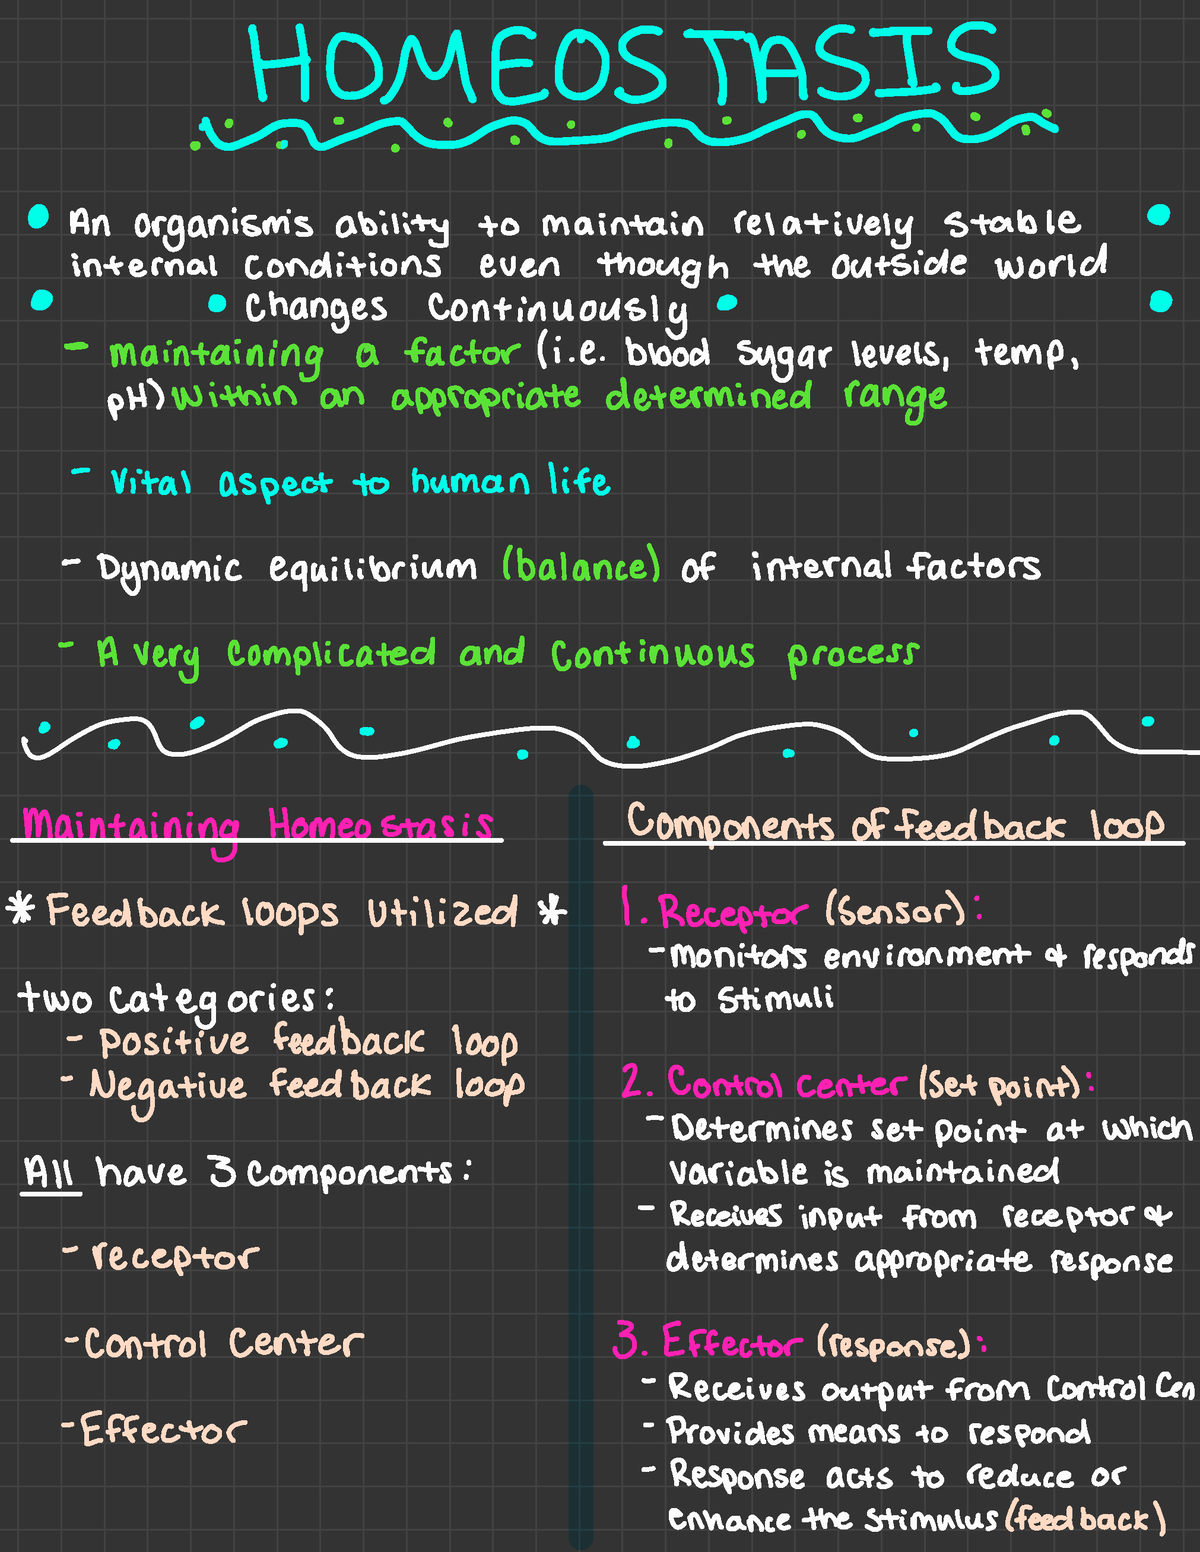 HOMEOSTASIS
• An organism's ability to maintain relatively stable •
internal conditions even though the outside world
• • Changes Continuously • •
- maintaining a factor (i.e. blood sugar levels, temp,
pH) within an appropriate determined range
- Vital aspect to human life
- Dynamic equilibrium (balance) of internal factors
- A very complicated and continuous process
Maintaining Homeostasis
* Feedback loops utilized *
two categories:
- positive feedback loop
- Negative feedback loop
All have 3 components:
- receptor
- Control Center
- Effector
Components of feedback loop
1. Receptor (sensor):
- monitors environment & responds
to stimuli
2. Control center (set point):
- Determines set point at which
variable is maintained
- Receives input from receptor &
determines appropriate response
3. Effector (response):
- Receives output from Control Cen
- Provides means to respond
- Response acts to reduce or
enhance the stimulus (feedback)